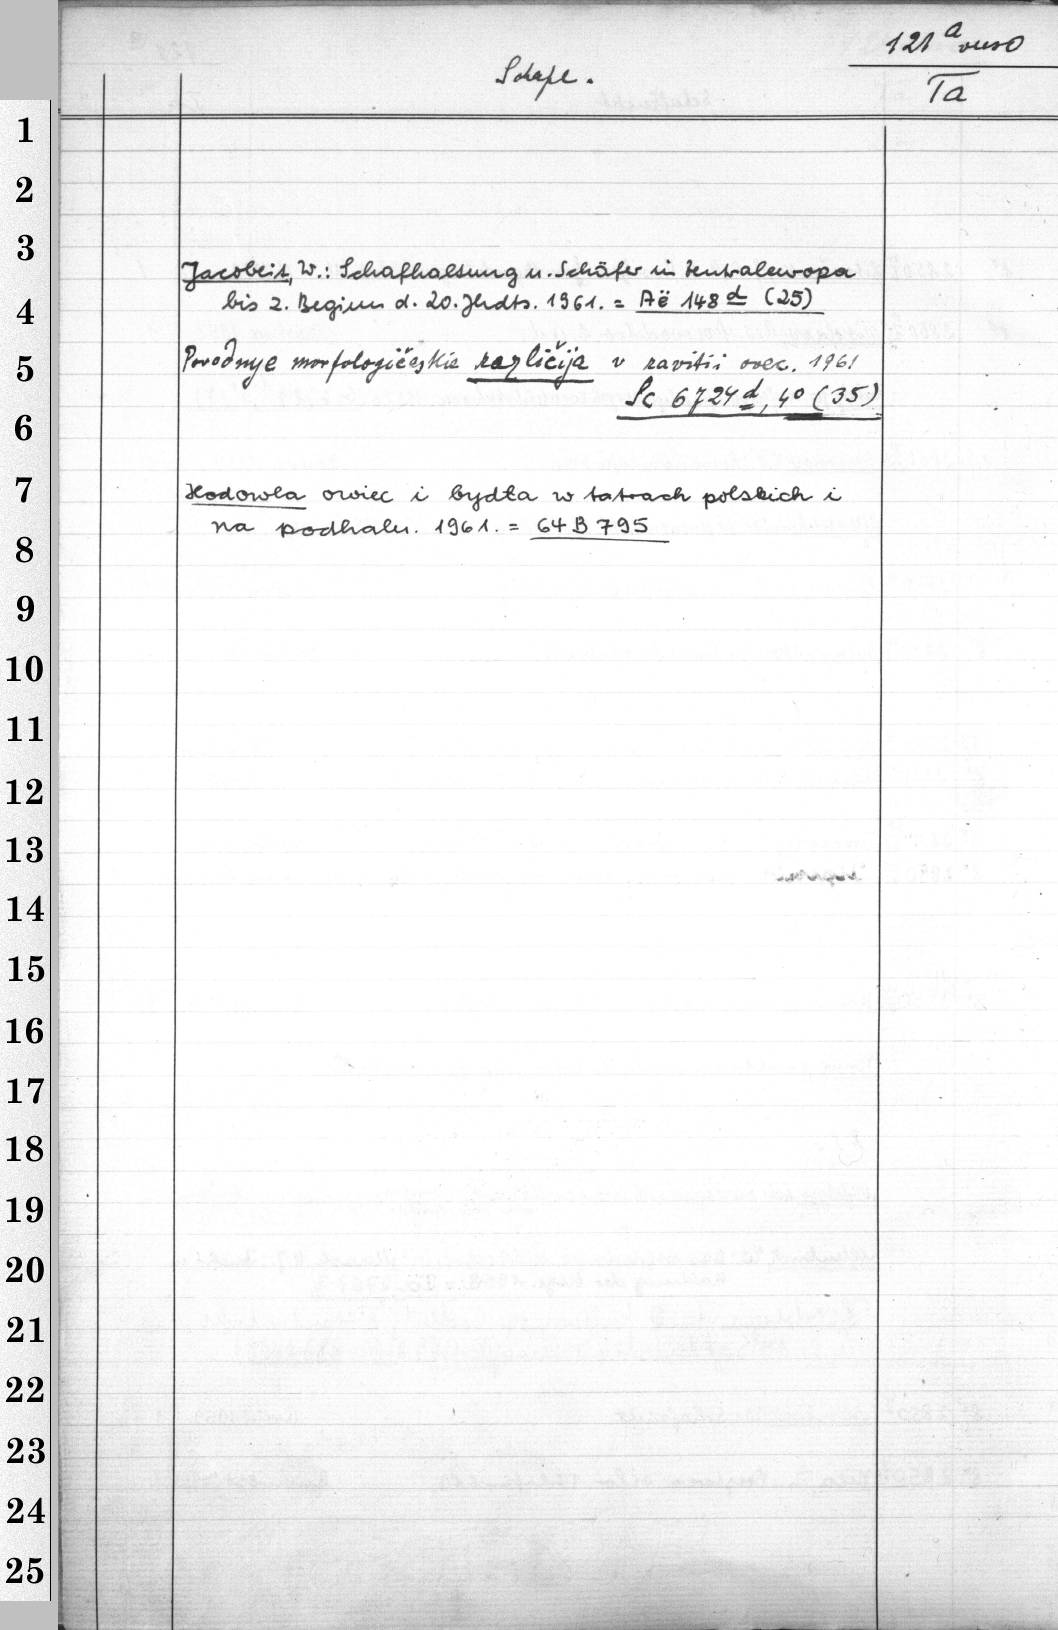 121 a verso
Schafe.
Ta
1
2
3
Jacobeit, W.: Schafhaltung u. Schäfer in Zentraleuropa
4
bis z. Beginn d. 20. Jhdts. 1961. = Aë 148 d (25)
5
Porodnye morfologičeskie različija v razvitii ovec. 1961
Sc 6724 d, 40 (35)
6
7
Hodowla owiec i bydła w tatrach polskich i
na podhalu. 1961. = 64 B 795
8
9
10
11
12
13
14
15
16
17
18
19
20
21
22
23
24
25